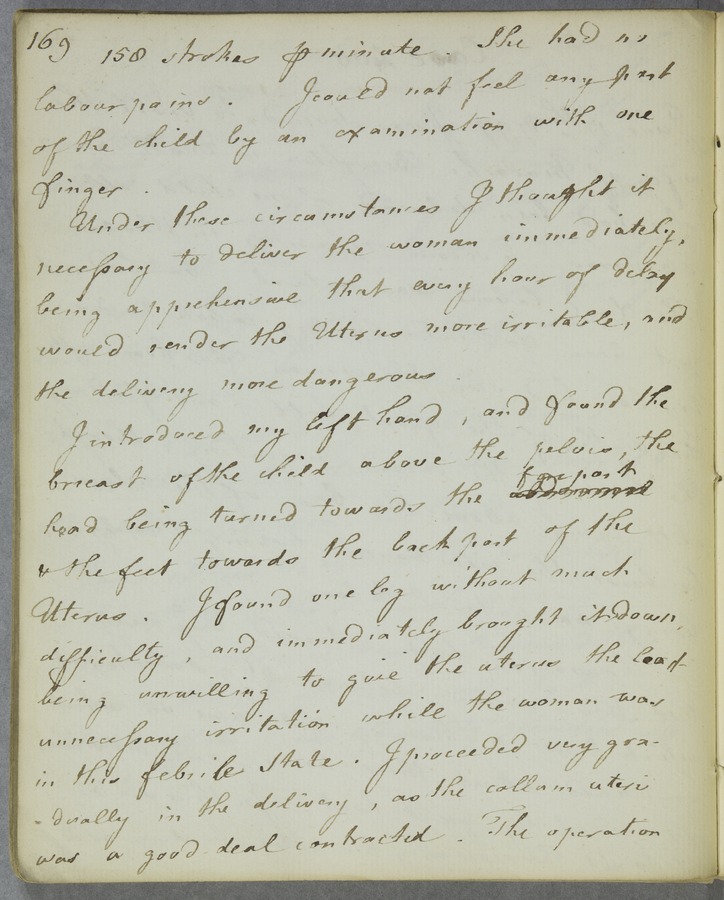 169 158 strokes ⅌ minute. She had no
labour pains. I could not feel any part
of the child by an examination with one
finger.
Under these circumstances I thought it
necessary to deliver the woman immediately,
being apprehensive that every hour of delay
would render the Uterus more irritable, and
the delivery more dangerous.
I introduced my left hand, and found the
breast of the child above the pelvis, the
fore part
head being turned towards the abdomen
& the feet towards the back part of the
Uterus. I found one leg without much
difficulty, and immediately brought it down,
being unwilling to give the uterus the least
unnecessary irritation while the woman was
in this febrile state. I proceeded very gra-
-dually in the delivery, as the collum uteri
was a good deal contracted. The operation